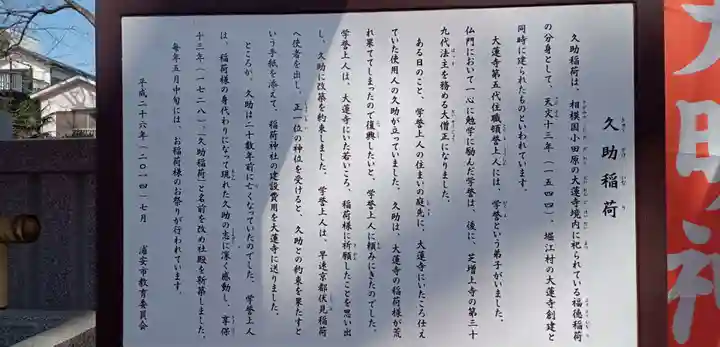 久助稲荷
久助稲荷は、相模国小田原の大蓮寺境内に祀られている福徳稲荷
の分身として、天文十三年(一五四四)、堀江村の大蓮寺創建と
同時に建られたものといわれています。
大蓮寺第五代住職頓誉上人には、学誉という弟子がいました。
仏門において一心に勉学に励んだ学誉は、後に、芝増上寺の第三十
九代法主を務める大僧正になりました。
ある日のこと、学誉上人の住まいの庭先に、大蓮寺にいたころ仕え
ていた使用人の久助が立っていました。久助は、大蓮寺の稲荷様が荒
れ果ててしまったので復興したいと、学誉上人に頼みにきたのでした。
学誉上人は、大蓮寺にいた若いころ、稲荷様に祈願したことを思い出
し、久助に改築を約束しました。学誉上人は、早速京都伏見稲荷
へ使者を出し、正一位の神位を受けると、久助との約束を果たすと
いう手紙を添えて、稲荷神社の建設費用を大蓮寺に送りました。
ところが、久助は二十数年前に亡くなっていたのでした。学誉上人
は、稲荷様の身代わりになって現れた久助の志に深く感動し、享保
十三年(一七二八)、「久助稲荷」と名前を改め社殿を新築しました。
毎年五月中旬には、お稲荷様のお祭りが行われています。
平成二十六年(二〇一四)七月 浦安市教育委員会
大明神